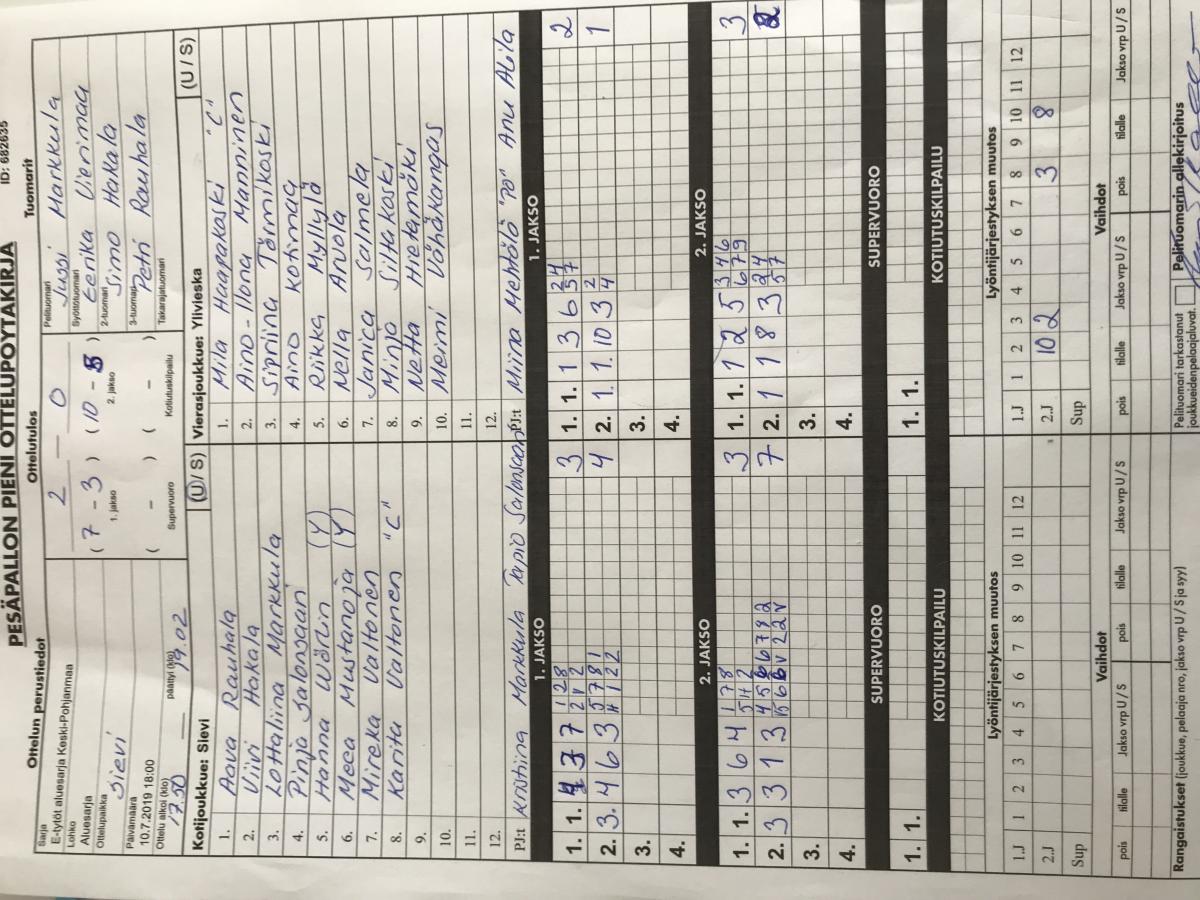 PESÄPALLON PIENI OTTELUPÖYTÄKIRJA ID: 682635
Ottelun perustiedot
Sarja
E-tytöt aluesarja Keski-Pohjanmaa
Lohko
Aluesarja
Ottelupaikka
Sievi
Päivämäärä
10.7.2019 18:00
Ottelu alkoi (klo) päättyi (klo)
17.50 19.02
Ottelutulos
2 — 0
( 7 - 3 ) ( 10 - 5 )
1. jakso 2. jakso
( - ) ( - )
Supervuoro Kotiutuskilpailu
Tuomarit
Pelituomari
Jussi Markkula
Syöttötuomari
Eerika Vierimaa
2-tuomari
Simo Hakala
3-tuomari
Petri Rauhala
Takarajatuomari
Kotijoukkue: Sievi (U / S)
1. Aava Rauhala
2. Viivi Hakala
3. Lottaliina Markkula
4. Pinja Salonsaari
5. Hanna Wörlin (Y)
6. Meea Mustanoja (Y)
7. Mireka Valtonen
8. Karita Valtonen "C"
9.
10.
11.
12.
PJ:t Kristiina Markkula Tapio Salonsaari
Vierasjoukkue: Ylivieska (U / S)
1. Mila Haapakoski "C"
2. Aino-Ilona Manninen
3. Sipriina Törmikoski
4. Aino Kotimaa
5. Riikka Myllylä
6. Nella Anola
7. Janica Salmela
8. Minja Siltakoski
9. Netta Hietamäki
10. Meimi Vähäkangas
11.
12.
PJ:t Miina Mehtälä "PD" Anu Alila
1. JAKSO 1. JAKSO
1. 1. 3 7 3
2. 3. 4 6 3 4
3.
4.
1. 1. 1 3 6 2
2. 1. 1. 10 3 1
3.
4.
2. JAKSO 2. JAKSO
1. 1. 3 6 4 3
2. 3 3 1 3 7
3.
4.
1. 1. 1 2 5 3
2. 1 1 8 3 2
3.
4.
SUPERVUORO SUPERVUORO
1. 1. 1. 1.
KOTIUTUSKILPAILU KOTIUTUSKILPAILU
Lyöntijärjestyksen muutos Lyöntijärjestyksen muutos
1.J 1 2 3 4 5 6 7 8 9 10 11 12 1.J 1 2 3 4 5 6 7 8 9 10 11 12
2.J 2.J 10 2 3 8
Sup Sup
Vaihdot Vaihdot
pois tilalle Jakso vrp U / S pois tilalle Jakso vrp U / S pois tilalle Jakso vrp U / S pois tilalle Jakso vrp U / S
Rangaistukset (joukkue, pelaaja nro, jakso vrp U / S ja syy)
Pelituomari tarkastanut
joukkueidenpelaajaluvat.
Pelituomarin allekirjoitus